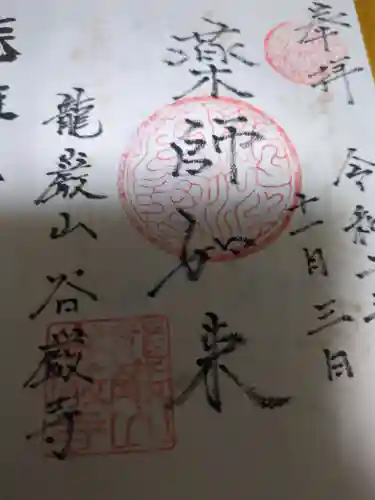 奉拝
令和二年
十一月三日
薬師如来
龍巖山 谷巖寺